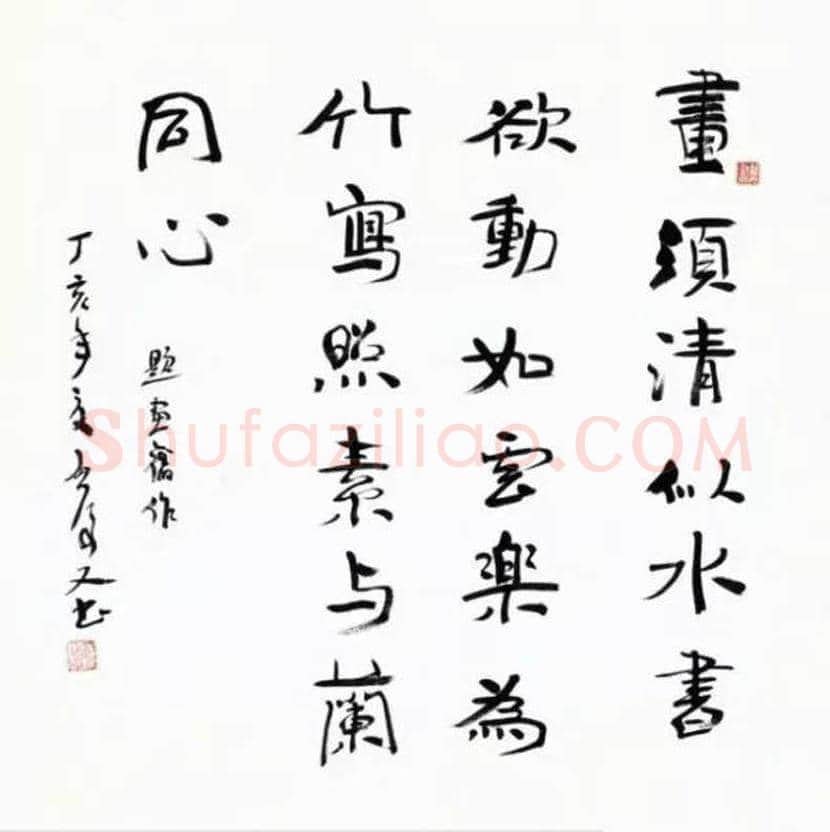 畫須清似水書
欲動如雲樂為
竹寫照素与蘭
同心
題畫舊作
丁亥年 又書
Shufaziliao.COM